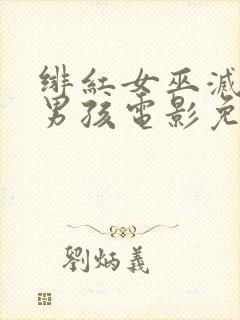 绯紅女巫滅
男孩電影免
劉炳義